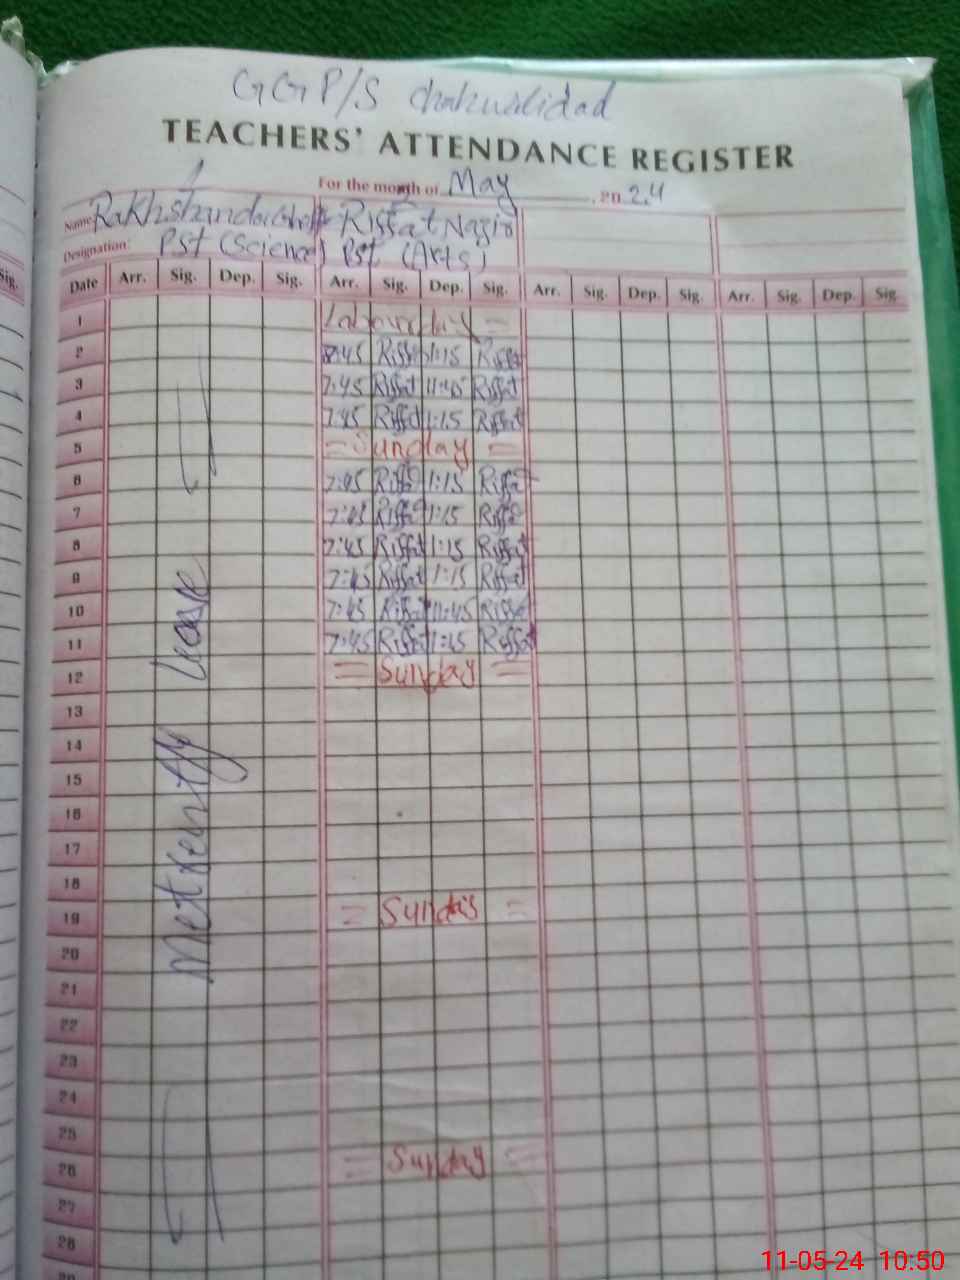 GGP/S chakualidad
TEACHERS' ATTENDANCE REGISTER
For the month of May 2024
Name Rakhshanda Riffat Nazir
Designation: Pst (Science) Pst (Arts)
Sig.
Date Arr. Sig. Dep. Sig. Arr. Sig. Dep. Sig. Arr. Sig. Dep. Sig. Arr. Sig. Dep. Sig
1 Labour day =
2 7:45 Riffat 1:15 Riffat
3 7:45 Riffat 11:45 Riffat
4 7:45 Riffat 1:15 Riffat
5 = Sunday =
6 7:45 Riffat 1:15 Riffat
7 7:45 Riffat 1:15 Riffat
8 7:45 Riffat 1:15 Riffat
9 7:45 Riffat 1:15 Riffat
10 7:45 Riffat 11:45 Riffat
11 7:45 Riffat 1:15 Riffat
12 = Sunday =
13
14
15
16
17
18
19 = Sunday =
20
21
22
23
24
25
26 = Sunday =
27
28
Meternity Lease
11-05-24 10:50